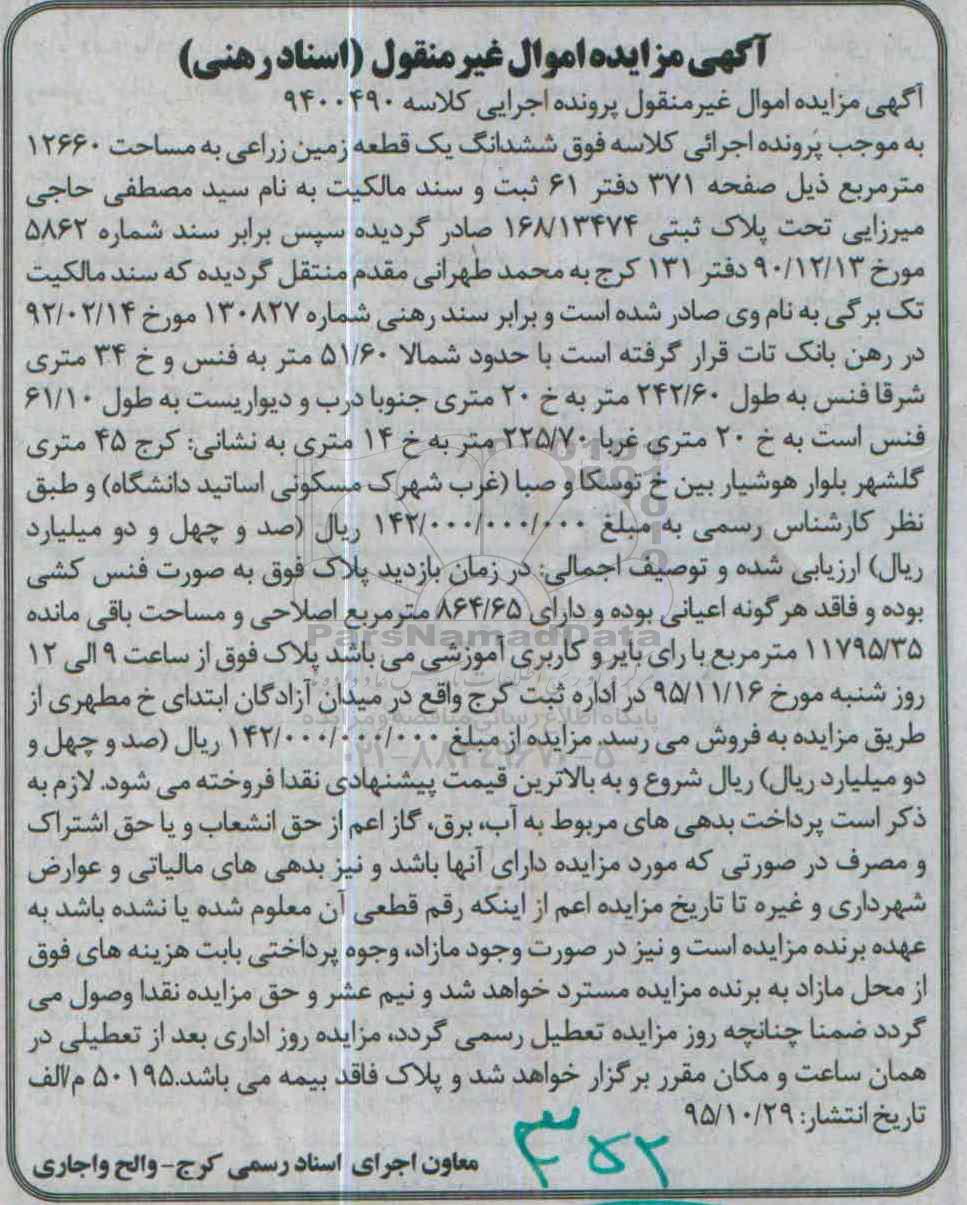 آگهی مزایده اموال غیر منقول (اسناد رهنی)
آگهی مزایده اموال غیرمنقول پرونده اجرایی کلاسه ۹۴۰۰۴۹۰
به موجب پرونده اجرائی کلاسه فوق ششدانگ یک قطعه زمین زراعی به مساحت ۱۲۶۶۰
مترمربع ذیل صفحه ۳۷۱ دفتر ۶۱ ثبت و سند مالکیت به نام سید مصطفی حاجی
میرزایی تحت پلاک ثبتی ۱۶۸/۱۳۴۷۴ صادر گردیده سپس برابر سند شماره ۵۸۶۲
مورخ ۹۰/۱۲/۱۳ دفتر ۱۳۱ کرج به محمد طهرانی مقدم منتقل گردیده که سند مالکیت
تک برگی به نام وی صادر شده است و برابر سند رهنی شماره ۱۳۰۸۲۷ مورخ ۹۲/۰۲/۱۴
در رهن بانک تات قرار گرفته است با حدود شمالا ۵۱/۶۰ متر به فنس و خ ۳۴ متری
شرقا فنس به طول ۲۴۲/۶۰ متر به خ ۲۰ متری جنوبا درب و دیواریست به طول ۶۱/۱۰
فنس است به خ ۲۰ متری غربا ۲۲۵/۷۰ متر به خ ۱۴ متری به نشانی: کرج ۴۵ متری
گلشهر بلوار هوشیار بین خ توسکا و صبا (غرب شهرک مسکونی اساتید دانشگاه) و طبق
نظر کارشناس رسمی به مبلغ ۱۴۲/۰۰۰/۰۰۰/۰۰۰ ریال (صد و چهل و دو میلیارد
ریال) ارزیابی شده و توصیف اجمالی: در زمان بازدید پلاک فوق به صورت فنس کشی
بوده و فاقد هرگونه اعیانی بوده و دارای ۸۶۴/۶۵ مترمربع اصلاحی و مساحت باقی مانده
۱۱۷۹۵/۳۵ مترمربع با رای بایر و کاربری آموزشی می باشد پلاک فوق از ساعت ۹ الی ۱۲
روز شنبه مورخ ۹۵/۱۱/۱۶ در اداره ثبت کرج واقع در میدان آزادگان ابتدای خ مطهری از
طریق مزایده به فروش می رسد. مزایده از مبلغ ۱۴۲/۰۰۰/۰۰۰/۰۰۰ ریال (صد و چهل و
دو میلیارد ریال) ریال شروع و به بالاترین قیمت پیشنهادی نقدا فروخته می شود. لازم به
ذکر است پرداخت بدهی های مربوط به آب، برق، گاز اعم از حق انشعاب و یا حق اشتراک
و مصرف در صورتی که مورد مزایده دارای آنها باشد و نیز بدهی های مالیاتی و عوارض
شهرداری و غیره تا تاریخ مزایده اعم از اینکه رقم قطعی آن معلوم شده یا نشده باشد به
عهده برنده مزایده است و نیز در صورت وجود مازاد، وجوه پرداختی بابت هزینه های فوق
از محل مازاد به برنده مزایده مسترد خواهد شد و نیم عشر و حق مزایده نقدا وصول می
گردد ضمنا چنانچه روز مزایده تعطیل رسمی گردد، مزایده روز اداری بعد از تعطیلی در
همان ساعت و مکان مقرر برگزار خواهد شد و پلاک فاقد بیمه می باشد.۵۰۱۹۵ م/الف
تاریخ انتشار: ۹۵/۱۰/۲۹
معاون اجرای اسناد رسمی کرج - والح واجاری
۳۵۲
ParsNamadData
پایگاه اطلاع رسانی مناقصه و مزایده